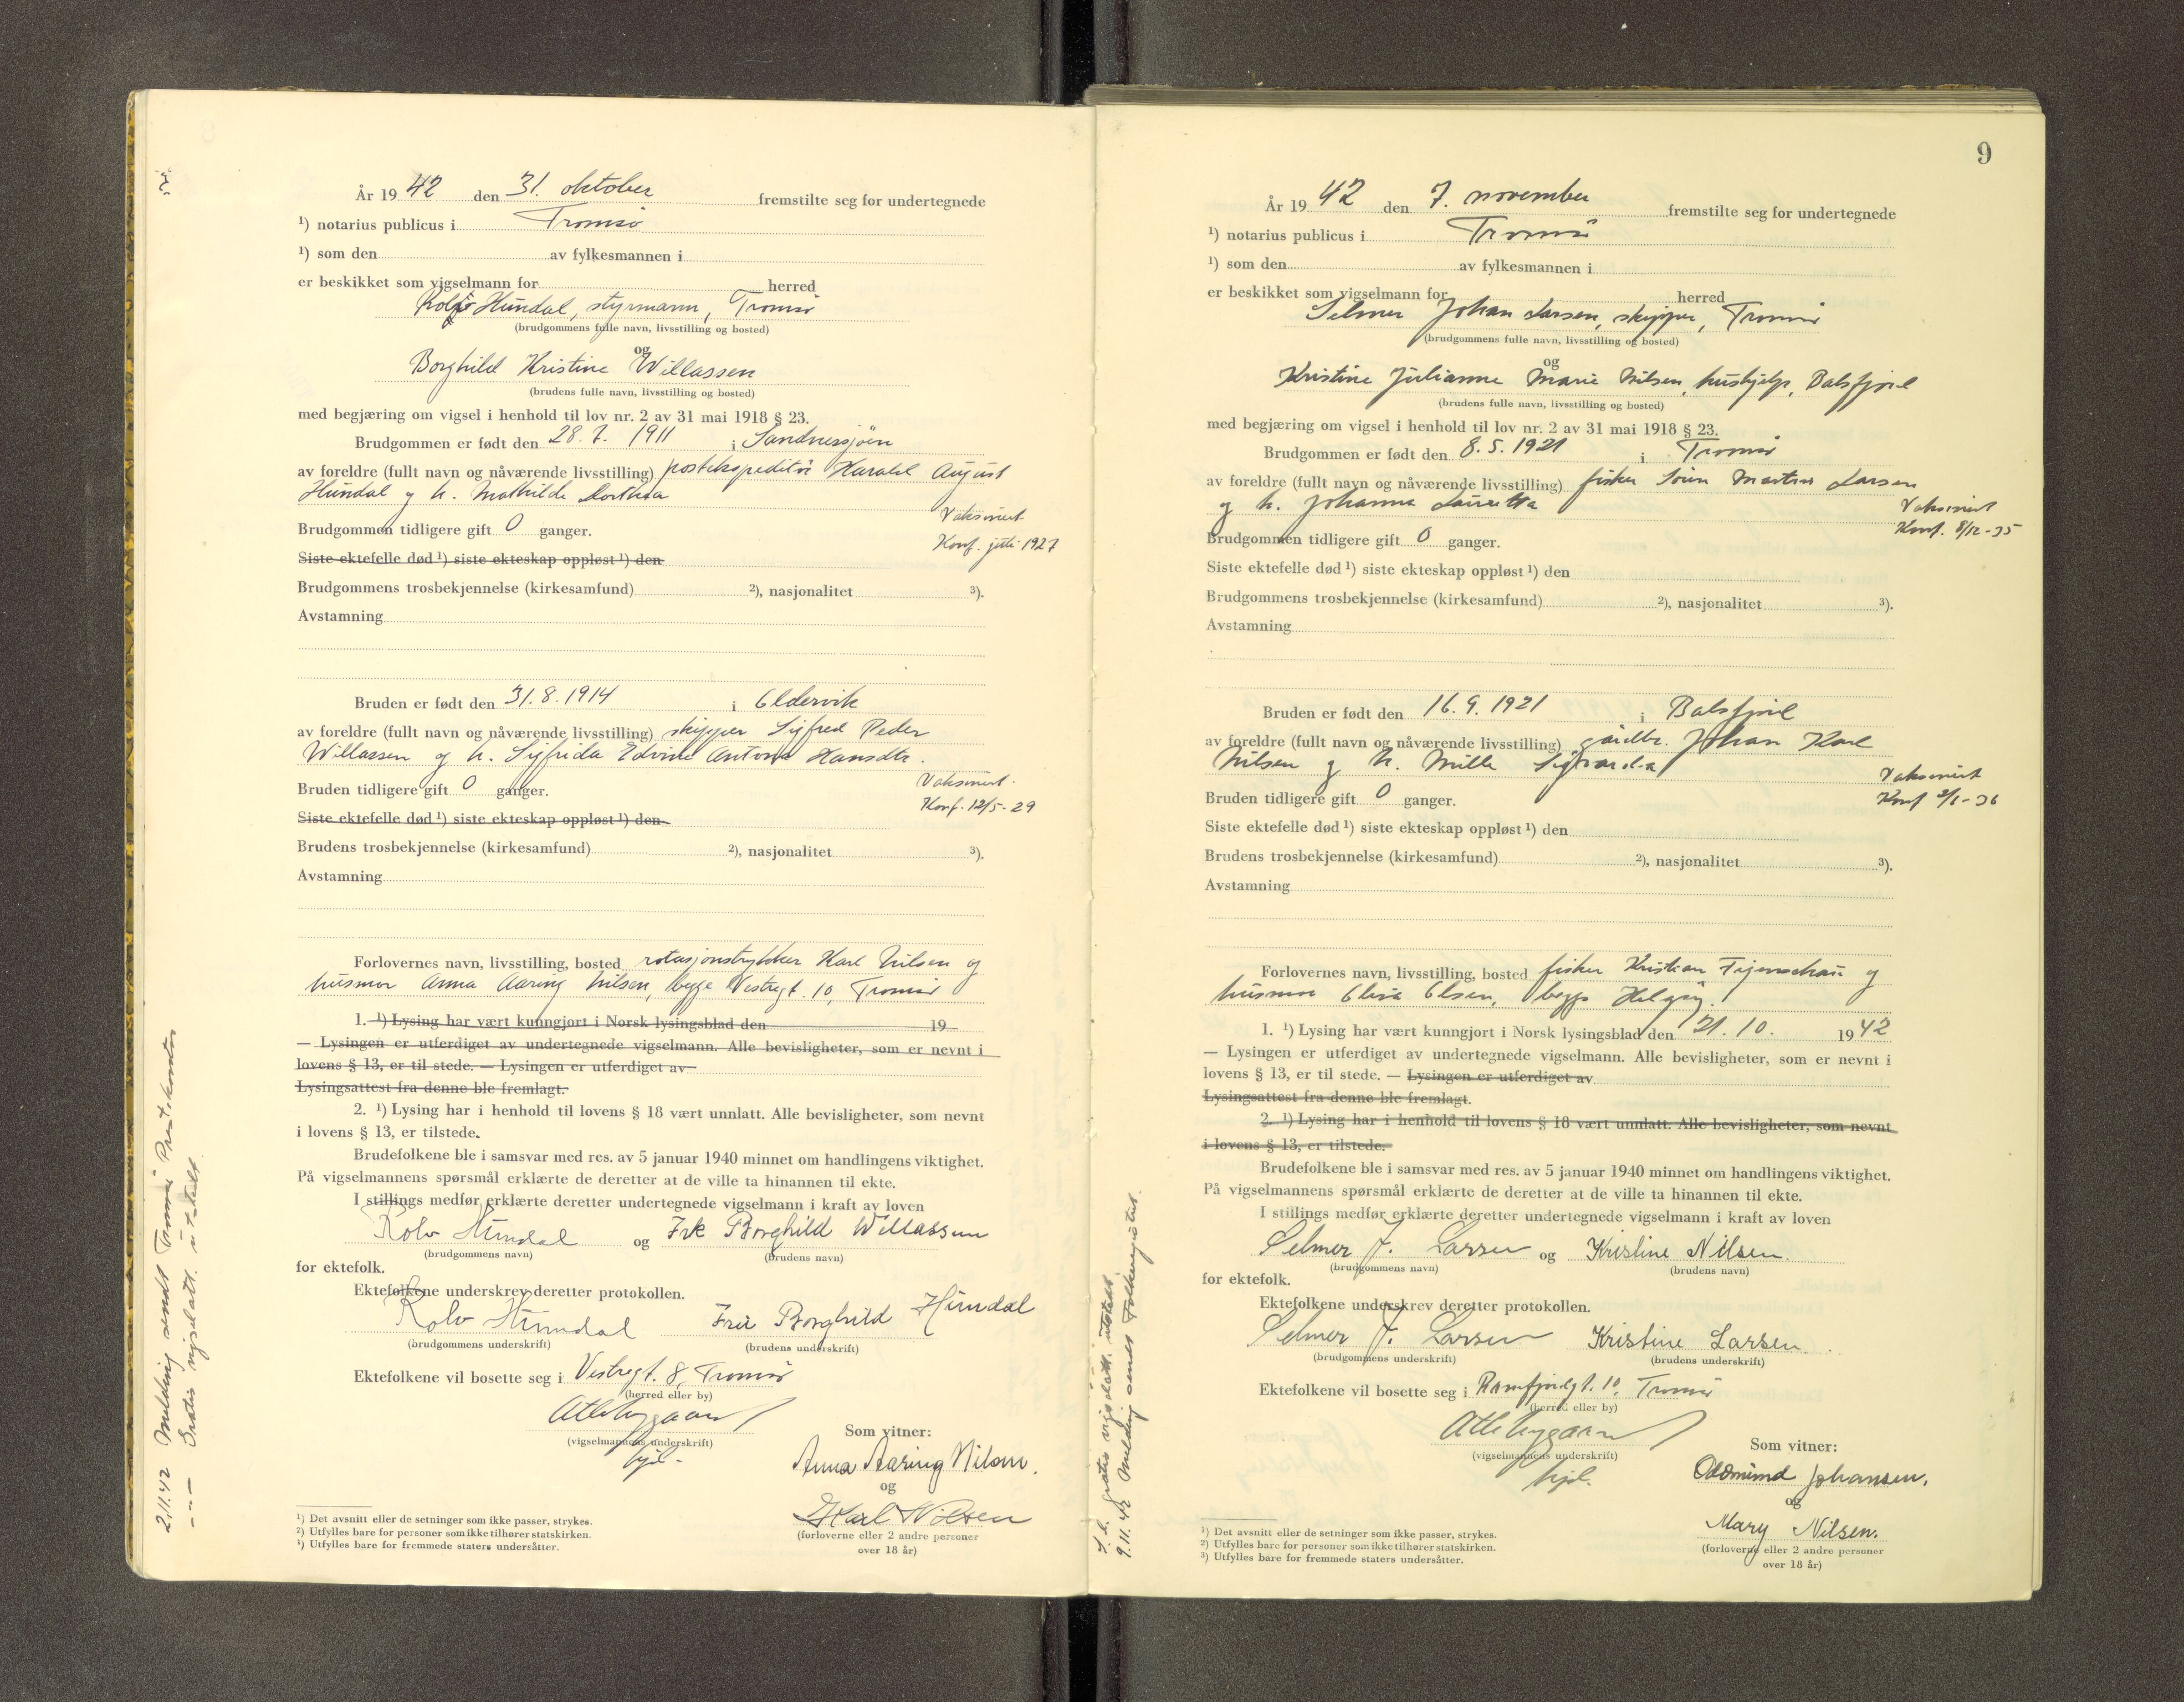 År 1942 den 31. oktober fremstilte seg for undertegnede
¹) notarius publicus i Tromsø
¹) som den av fylkesmannen i
er beskikket som vigselmann for herred
Hundal, styrmann, Tromsø
(brudgommens fulle navn, livsstilling og bosted)
og
Borghild Kristine Willassen
(brudens fulle navn, livsstilling og bosted)
med begjæring om vigsel i henhold til lov nr. 2 av 31 mai 1918 § 23.
Brudgommen er født den 28.7. 1911 i Sandnessjøen
av foreldre (fullt navn og nåværende livsstilling) postekspeditør Harald August
Hundal og h. Mathilde Dorthea
Vaksinert
Brudgommen tidligere gift 0 ganger.
Konf. juli 1927
Siste ektefelle død ¹) siste ekteskap oppløst ¹) den
Brudgommens trosbekjennelse (kirkesamfund) ²), nasjonalitet ³).
Avstamning
Bruden er født den 31.8.1914 i Oldervik
av foreldre (fullt navn og nåværende livsstilling) skipper Sigfred Peder
Willassen og h. Sigfrida Edvine Antona Hansdtr.
Vaksinert.
Bruden tidligere gift 0 ganger.
Konf. 12/5-29
Siste ektefelle død ¹) siste ekteskap oppløst ¹) den
Brudens trosbekjennelse (kirkesamfund) ²), nasjonalitet ³).
Avstamning
Forlovernes navn, livsstilling, bosted rotasjonstrykker Karl Nilsen og
husmor Anna Aaring Nilsen, begge Vestregt. 10, Tromsø
1. ¹) Lysing har vært kunngjort i Norsk lysingsblad den 19
— Lysingen er utferdiget av undertegnede vigselmann. Alle bevisligheter, som er nevnt i
lovens § 13, er til stede. — Lysingen er utferdiget av
Lysingsattest fra denne ble fremlagt.
2. ¹) Lysing har i henhold til lovens § 18 vært unnlatt. Alle bevisligheter, som nevnt
i lovens § 13, er tilstede.
Brudefolkene ble i samsvar med res. av 5 januar 1940 minnet om handlingens viktighet.
På vigselmannens spørsmål erklærte de deretter at de ville ta hinannen til ekte.
I stillings medfør erklærte deretter undertegnede vigselmann i kraft av loven
Rolv Hundal og Frk Borghild Willassen
(brudgommens navn) (brudens navn)
for ektefolk.
Ektefolkene underskrev deretter protokollen.
Rolv Hundal Fru Borghild Hundal
(brudgommens underskrift) (brudens underskrift)
Ektefolkene vil bosette seg i Vestregt. 8, Tromsø
(herred eller by)
(vigselmannens underskrift)
Som vitner:
Anna Aaring Nilsen.
og
Karl Nilsen
(forloverne eller 2 andre personer
over 18 år)
¹) Det avsnitt eller de setninger som ikke passer, strykes.
²) Utfylles bare for personer som ikke tilhører statskirken.
³) Utfylles bare for fremmede staters undersåtter.
2/11.42 Melding sendt Tromsø Prestekontor
— " — Gratis vigselatt. utstedt
9
År 1942 den 7. november fremstilte seg for undertegnede
¹) notarius publicus i Tromsø
¹) som den av fylkesmannen i
er beskikket som vigselmann for herred
Selmer Johan Larsen, skipper, Tromsø
(brudgommens fulle navn, livsstilling og bosted)
og
Kristine Julianne Marie Nilsen, hushjelp, Balsfjord
(brudens fulle navn, livsstilling og bosted)
med begjæring om vigsel i henhold til lov nr. 2 av 31 mai 1918 § 23.
Brudgommen er født den 8.5.1921 i Tromsø
av foreldre (fullt navn og nåværende livsstilling) fisker Sørin Martin Larsen
og h. Johanna Lauretta
Vaksinert
Konf. 8/12-35
Brudgommen tidligere gift 0 ganger.
Siste ektefelle død ¹) siste ekteskap oppløst ¹) den
Brudgommens trosbekjennelse (kirkesamfund) ²), nasjonalitet ³).
Avstamning
Bruden er født den 16.9.1921 i Balsfjord
av foreldre (fullt navn og nåværende livsstilling) gårdbr. Johan Karl
Nilsen og h. Milla Sigvarda
Vaksinert
Konf
Bruden tidligere gift 0 ganger.
Siste ektefelle død ¹) siste ekteskap oppløst ¹) den
Brudens trosbekjennelse (kirkesamfund) ²), nasjonalitet ³).
Avstamning
Forlovernes navn, livsstilling, bosted fisker Kristian Figenschau og
husmor Olsen, begge Helgøy.
1. ¹) Lysing har vært kunngjort i Norsk lysingsblad den 21.10. 1942
— Lysingen er utferdiget av undertegnede vigselmann. Alle bevisligheter, som er nevnt i
lovens § 13, er til stede. — Lysingen er utferdiget av
Lysingsattest fra denne ble fremlagt.
2. ¹) Lysing har i henhold til lovens § 18 vært unnlatt. Alle bevisligheter, som nevnt
i lovens § 13, er tilstede.
Brudefolkene ble i samsvar med res. av 5 januar 1940 minnet om handlingens viktighet.
På vigselmannens spørsmål erklærte de deretter at de ville ta hinannen til ekte.
I stillings medfør erklærte deretter undertegnede vigselmann i kraft av loven
Selmer J. Larsen og Kristine Nilsen.
(brudgommens navn) (brudens navn)
for ektefolk.
Ektefolkene underskrev deretter protokollen.
Selmer J. Larsen Kristine Larsen.
(brudgommens underskrift) (brudens underskrift)
Ektefolkene vil bosette seg i Ramfjordgt. 10, Tromsø
(herred eller by)
(vigselmannens underskrift)
Som vitner:
Oddmund Johansen.
og
Mary Nilsen.
(forloverne eller 2 andre personer
over 18 år)
¹) Det avsnitt eller de setninger som ikke passer, strykes.
²) Utfylles bare for personer som ikke tilhører statskirken.
³) Utfylles bare for fremmede staters undersåtter.
S. d. gratis vigselatt. utstedt.
9.11.42 Melding sendt Folkeregistret.